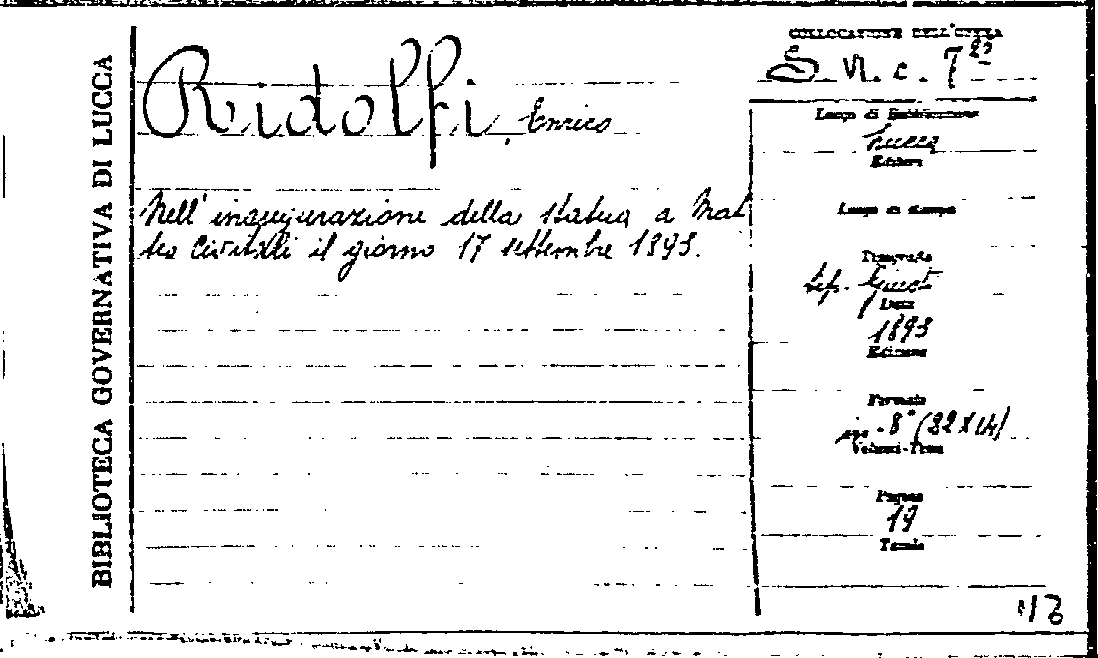 BIBLIOTECA GOVERNATIVA DI LUCCA
Ridolfi, Enrico
Nell'inaugurazione della statua a Mat
teo Civitali il giorno 17 settembre 1893.
COLLOCAZIONE DELL'OPERA
VI. c. 7
Luogo di Pubblicazione
Lucca
Editore
Luogo di stampa
Tipografia
Tip. Giusti
Data
1893
Edizione
Formato
in-8° (22 X 14)
Volumi-Tomi
Pagine
19
Tavole